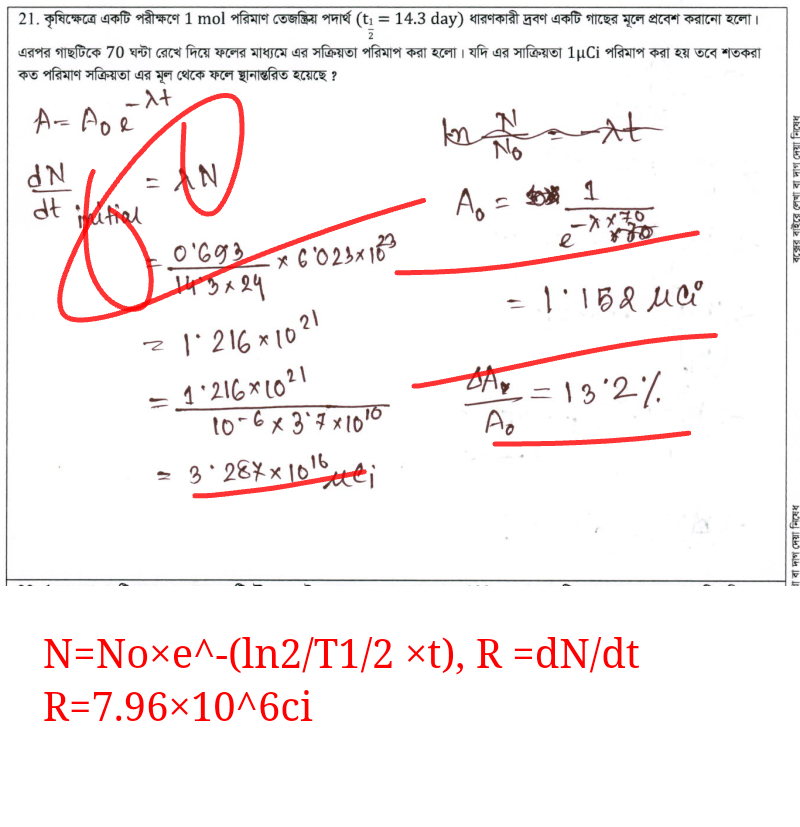 21. কৃষিক্ষেত্রে একটি পরীক্ষণে 1 mol পরিমাণ তেজস্ক্রিয় পদার্থ (t_{1/2} = 14.3 day) ধারণকারী দ্রবণ একটি গাছের মূলে প্রবেশ করানো হলো।
এরপর গাছটিকে 70 ঘন্টা রেখে দিয়ে ফলের মাধ্যমে এর সক্রিয়তা পরিমাপ করা হলো। যদি এর সাক্রিয়তা 1μCi পরিমাপ করা হয় তবে শতকরা
কত পরিমাণ সক্রিয়তা এর মূল থেকে ফলে স্থানান্তরিত হয়েছে ?
A = A₀ e^{-λt}
dN/dt initial = λN
= 0.693/(14.3×24) × 6.023×10^{23}
= 1.216×10^{21}
= 1.216×10^{21}/(10^{-6} × 3.7×10^{10})
= 3.287×10^{16} μCi
ln N/N₀ = -λt
A₀ = 1/e^{-λ×70}
= 1.152 μCi
ΔA/A₀ = 13.2%
বক্সের বাইরে লেখা বা দাগ দেয়া নিষেধ
বা দাগ দেয়া নিষেধ
N=No×e^-(ln2/T1/2 ×t), R =dN/dt
R=7.96×10^6ci